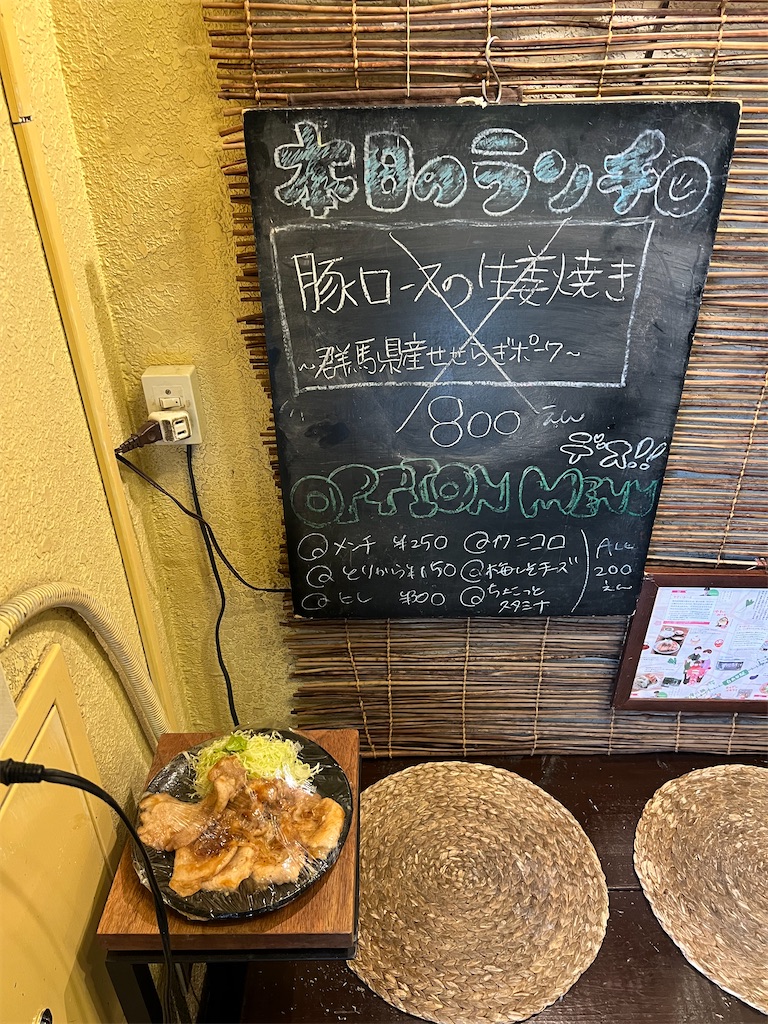 本日のランチ
豚ロースの生姜焼き
~群馬県産せせらぎポーク~
800えん
デス!!
OPTION MENU
メンチ ¥250 カニコロ
とりから ¥150 梅しそチーズ
ヒレ ¥300 ちょこっと
スタミナ
ALL
200
えん